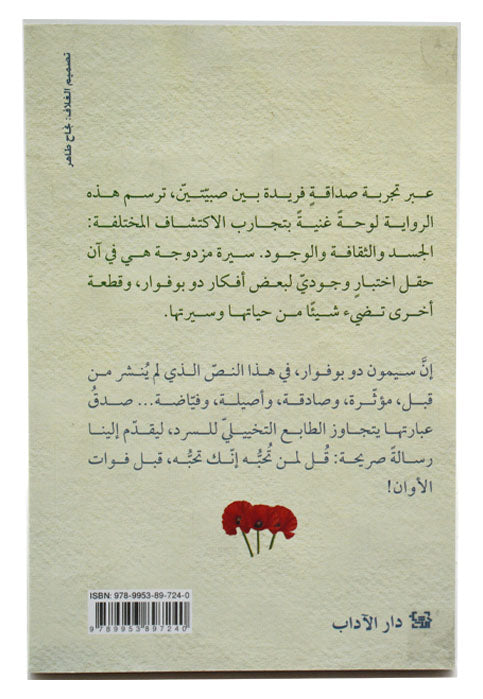 تصميم الغلاف: نجاح طاهر
عبر تجربة صداقةٍ فريدة بين صبيّتينّ، ترسم هذه
الرواية لوحةً غنيةً بتجارب الاكتشاف المختلفة:
الجسد والثقافة والوجود. سيرة مزدوجة هي في آن
حقل اختبارٍ وجوديّ لبعض أفكار دو بوفوار، وقطعة
أخرى تضيء شيئًا من حياتها وسيرتها.
إنَّ سيمون دو بوفوار، في هذا النصّ الذي لم يُنشر من
قبل، مؤثّرة، وصادقة، وأصيلة، وفيّاضة... صدقُ
عبارتها يتجاوز الطابع التخييليّ للسرد، ليقدّم إلينا
رسالةً صريحة: قُل لمن تُحبُّه إنّك تحبُّه، قبل فوات
الأوان!
ISBN: 978-9953-89-724-0
9 789953 897240
دار الآداب